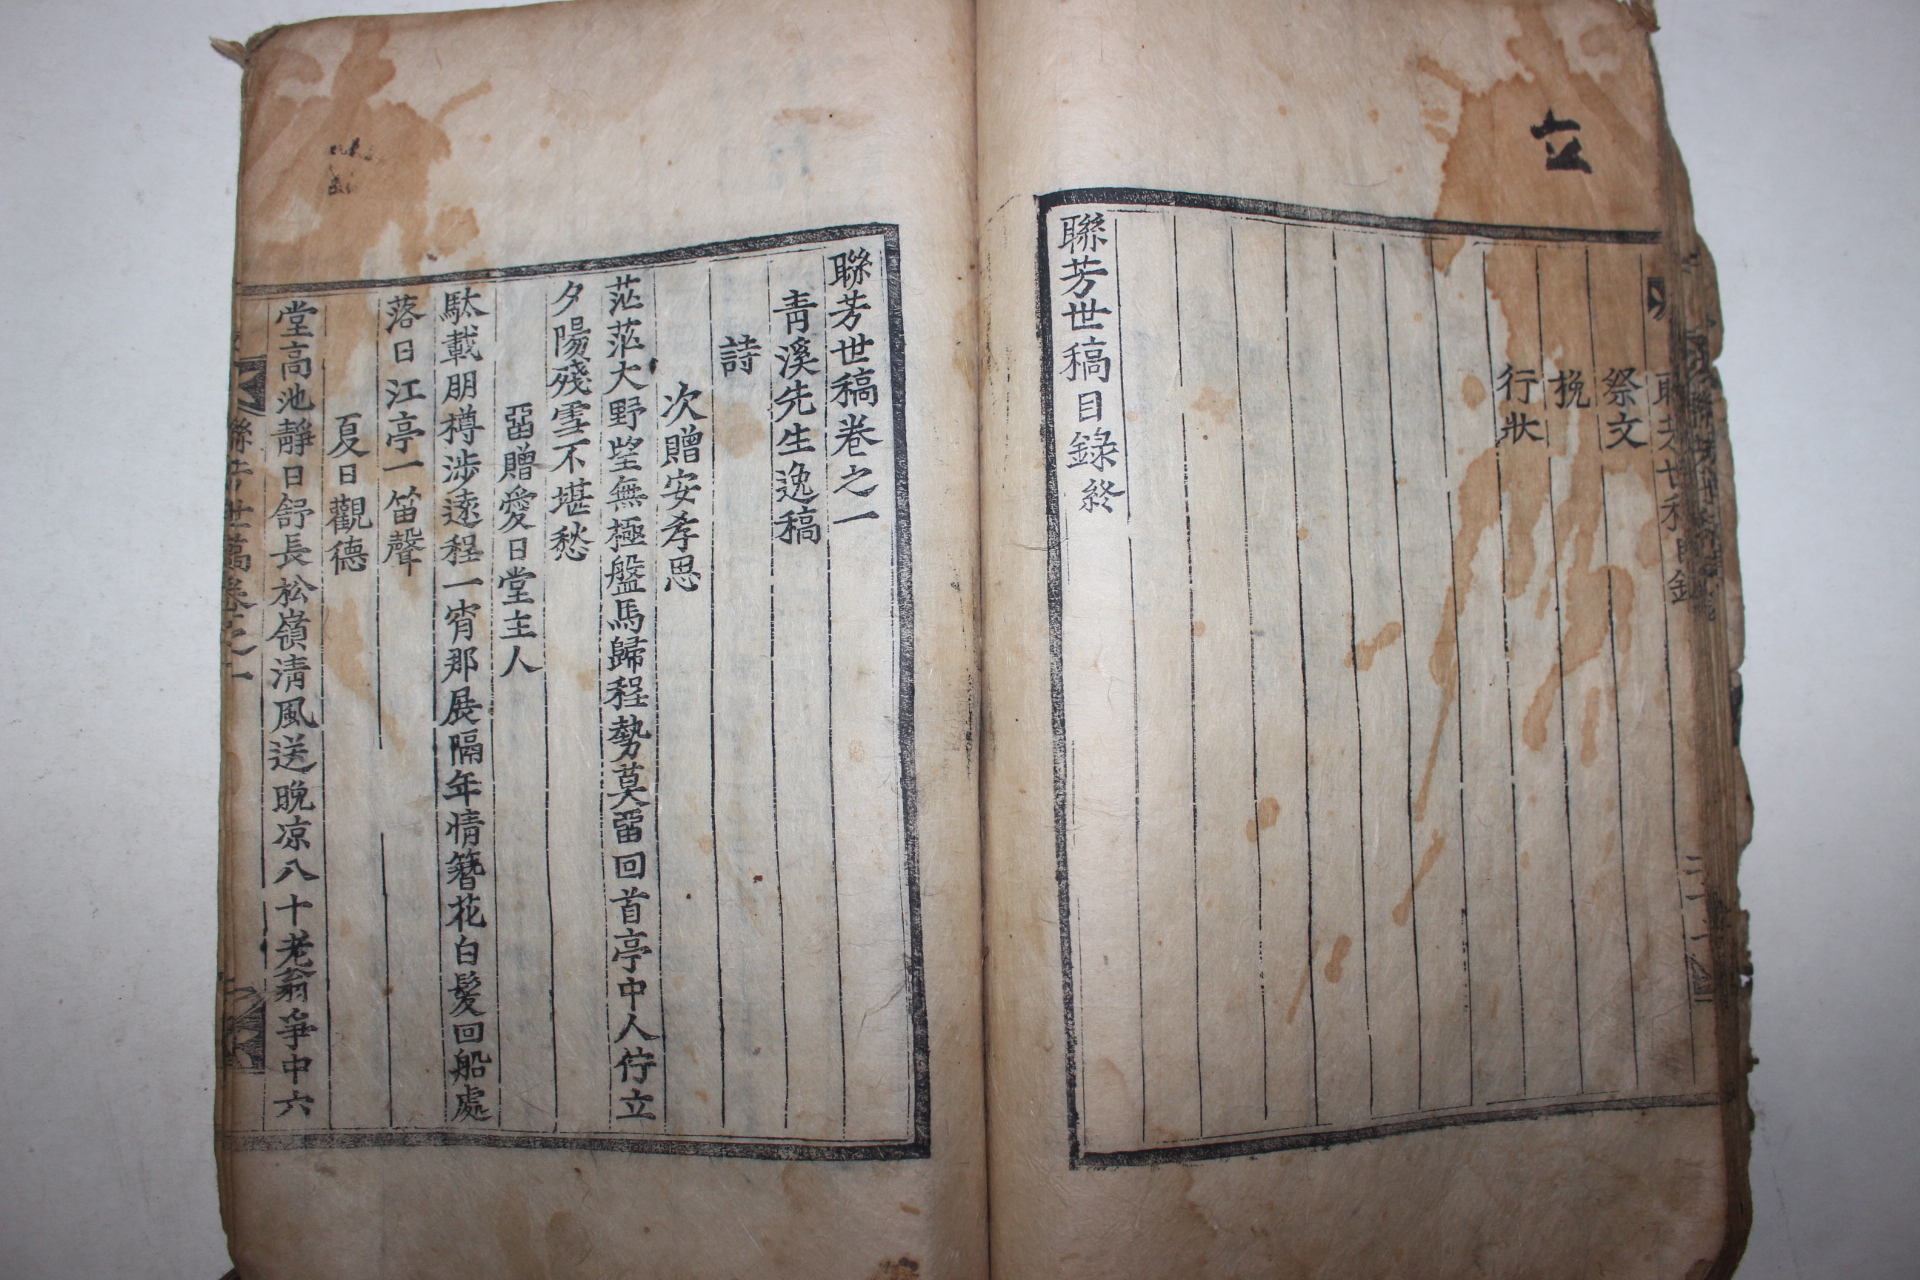 立
祭文
挽
行狀
聯芳世稿目錄終
聯芳世稿卷之一
靑溪先生逸稿
詩
次贈安孝思
茫茫大野望無極盤馬歸程勢莫畱回首亭中人佇立
夕陽殘雪不堪愁
畱贈愛日堂主人
駄載朋樽涉遠程一宵那展隔年情簪花白髮回船處
落日江亭一笛聲
夏日觀德
堂高池靜日舒長松嶺淸風送晚凉八十老翁爭中六
聯芳世稿卷之一